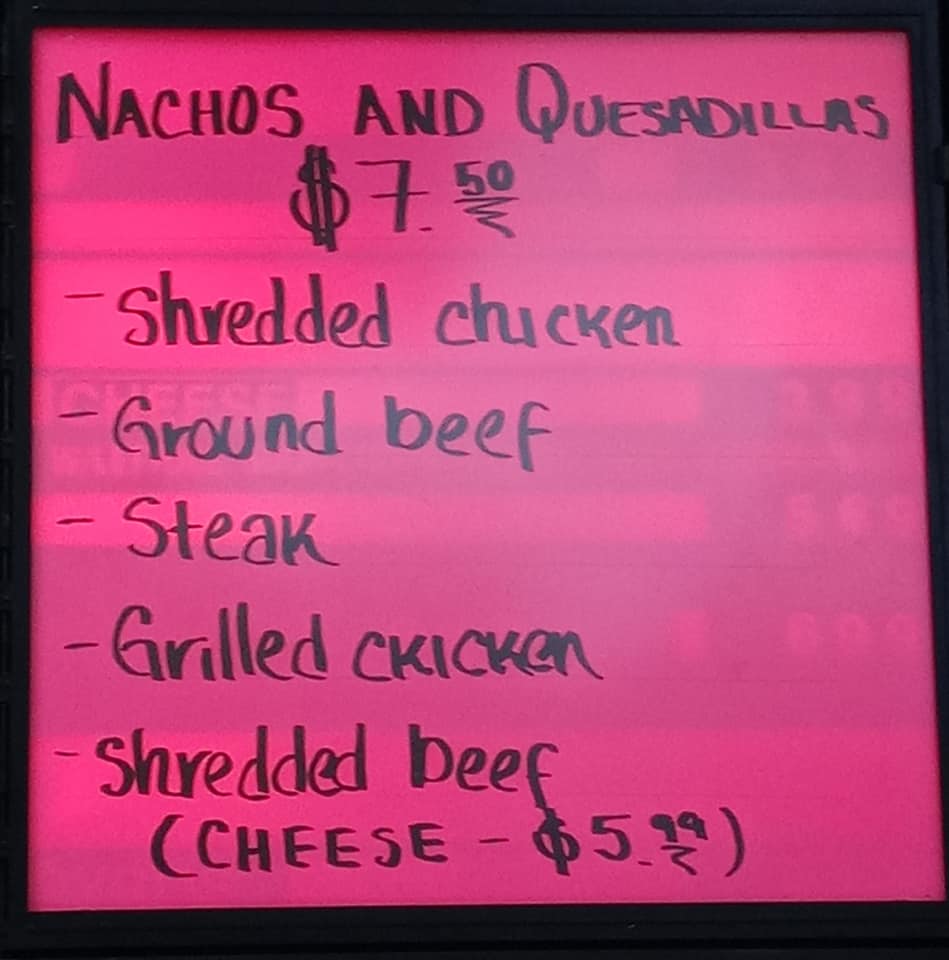 NACHOS AND QUESADILLAS
$7.50
- Shredded chicken
- Ground beef
- Steak
- Grilled chicken
- Shredded beef
(CHEESE - $5.99)